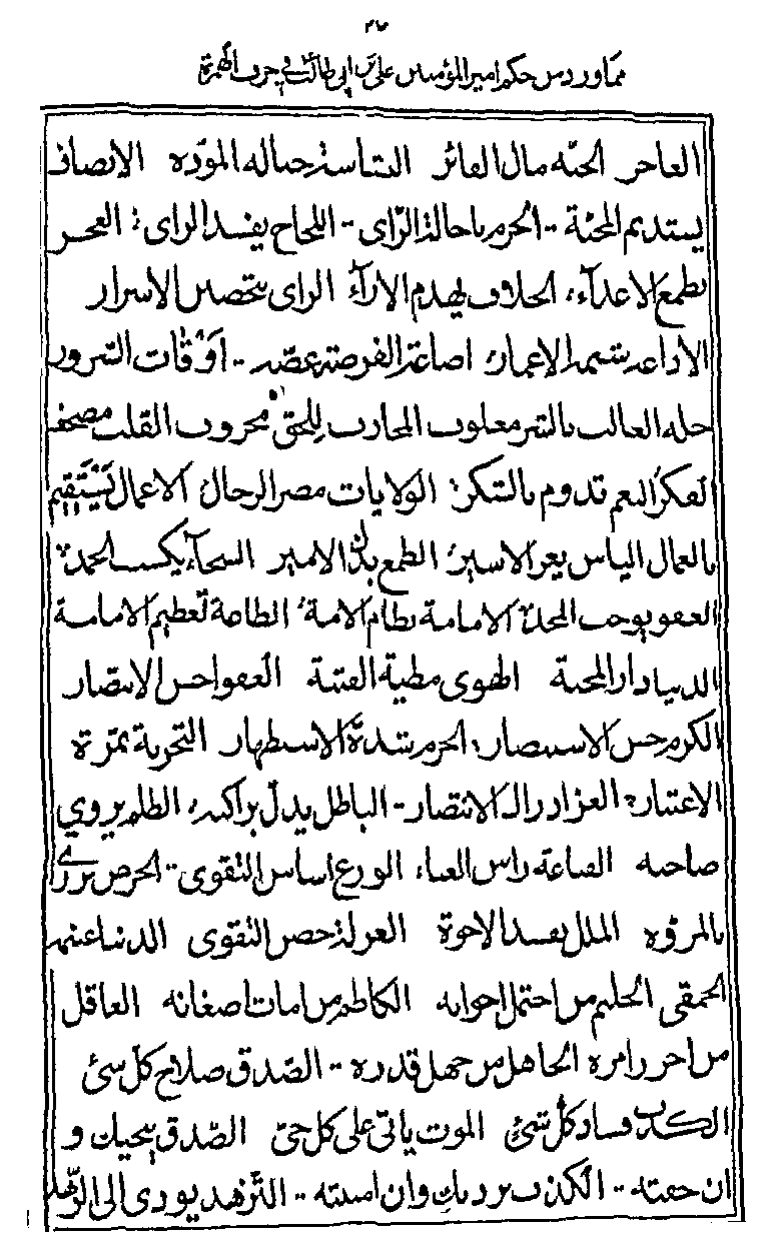 ٢٧
مما ورد من حكم امير المؤمنين علي بن ابي طالب في حرف الهمزة
العاجز الجنه مال الفائز البشاشة حباله المودّه الانصاف
يستديم المحبّة الحزم باجالة الرّاى اللجاج يفسد الراى العجز
يطمع الاعدآء الخلاف يهدم الارآء الراى بتحصين الاسرار
الاذاعه شيمه الاغمار اضاعة الفرصة غصّه اوقات السّرور
خلسه الغالب بالشر مغلوب المحارب للحق محروب القلب مصحف
الفكر النعم تدوم بالشكر الولايات مضامير الرجال الاعمال تستقيم
بالعمال الياس يعز الاسير الطمع يذل الامير السخآء يكسب الحمد
العفو يوجب المجد الامامة نظام الامة الطاعة تعظيم الامامة
الدنيا دار المحنة الهوى مطية الفتنة العفو احسن الانتصار
الكرم حسن الاستبصار الحزم شدّة الاستظهار التجربة تمرة
الاعتبار العز ادراك الانتصار الباطل يذل براكبه الظلم يردي
صاحبه القناعة راس الغناء الورع اساس التقوى الحرص يزرى
بالمروّه الملل يفسد الاخوة العزلة حصن التقوى الدنيا غنيمه
الحمقى الحليم من احتمل اخوانه الكاظم من امات اضغانه العاقل
من احرز امره الجاهل من جهل قدره الصّدق صلاح كل شئ
الكذب فساد كلّ شئ الموت ياتى على كل حىّ الصّدق ينجيك و
ان خفته الكذب يرديك وان امنته التّزهد يودى الى الزّهد